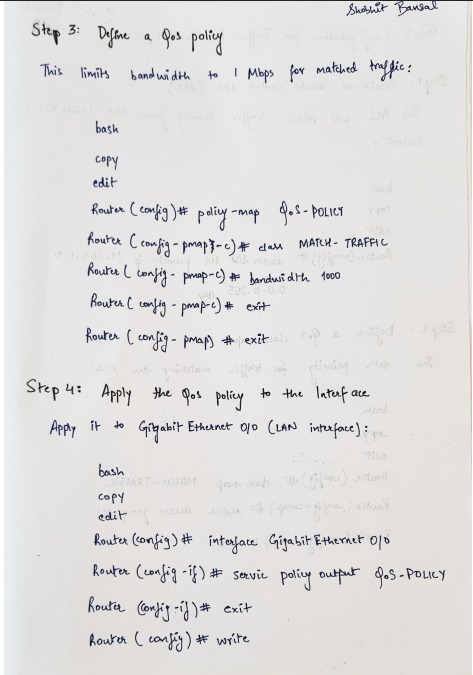 Shobhit Bansal
Step 3: Define a QoS policy
This limits bandwidth to 1 Mbps for matched traffic:
bash
copy
edit
Router (config)# policy-map QoS-POLICY
Router (config-pmap}-c)# class MATCH-TRAFFIC
Router (config-pmap-c)# bandwidth 1000
Router (config-pmap-c)# exit
Router (config-pmap) # exit
Step 4: Apply the QoS policy to the Interface
Apply it to Gigabit Ethernet 0/0 (LAN interface):
bash
copy
edit
Router (config) # interface Gigabit Ethernet 0/0
Router (config-if) # servic policy output QoS-POLICY
Router (config-if) # exit
Router (config) # write